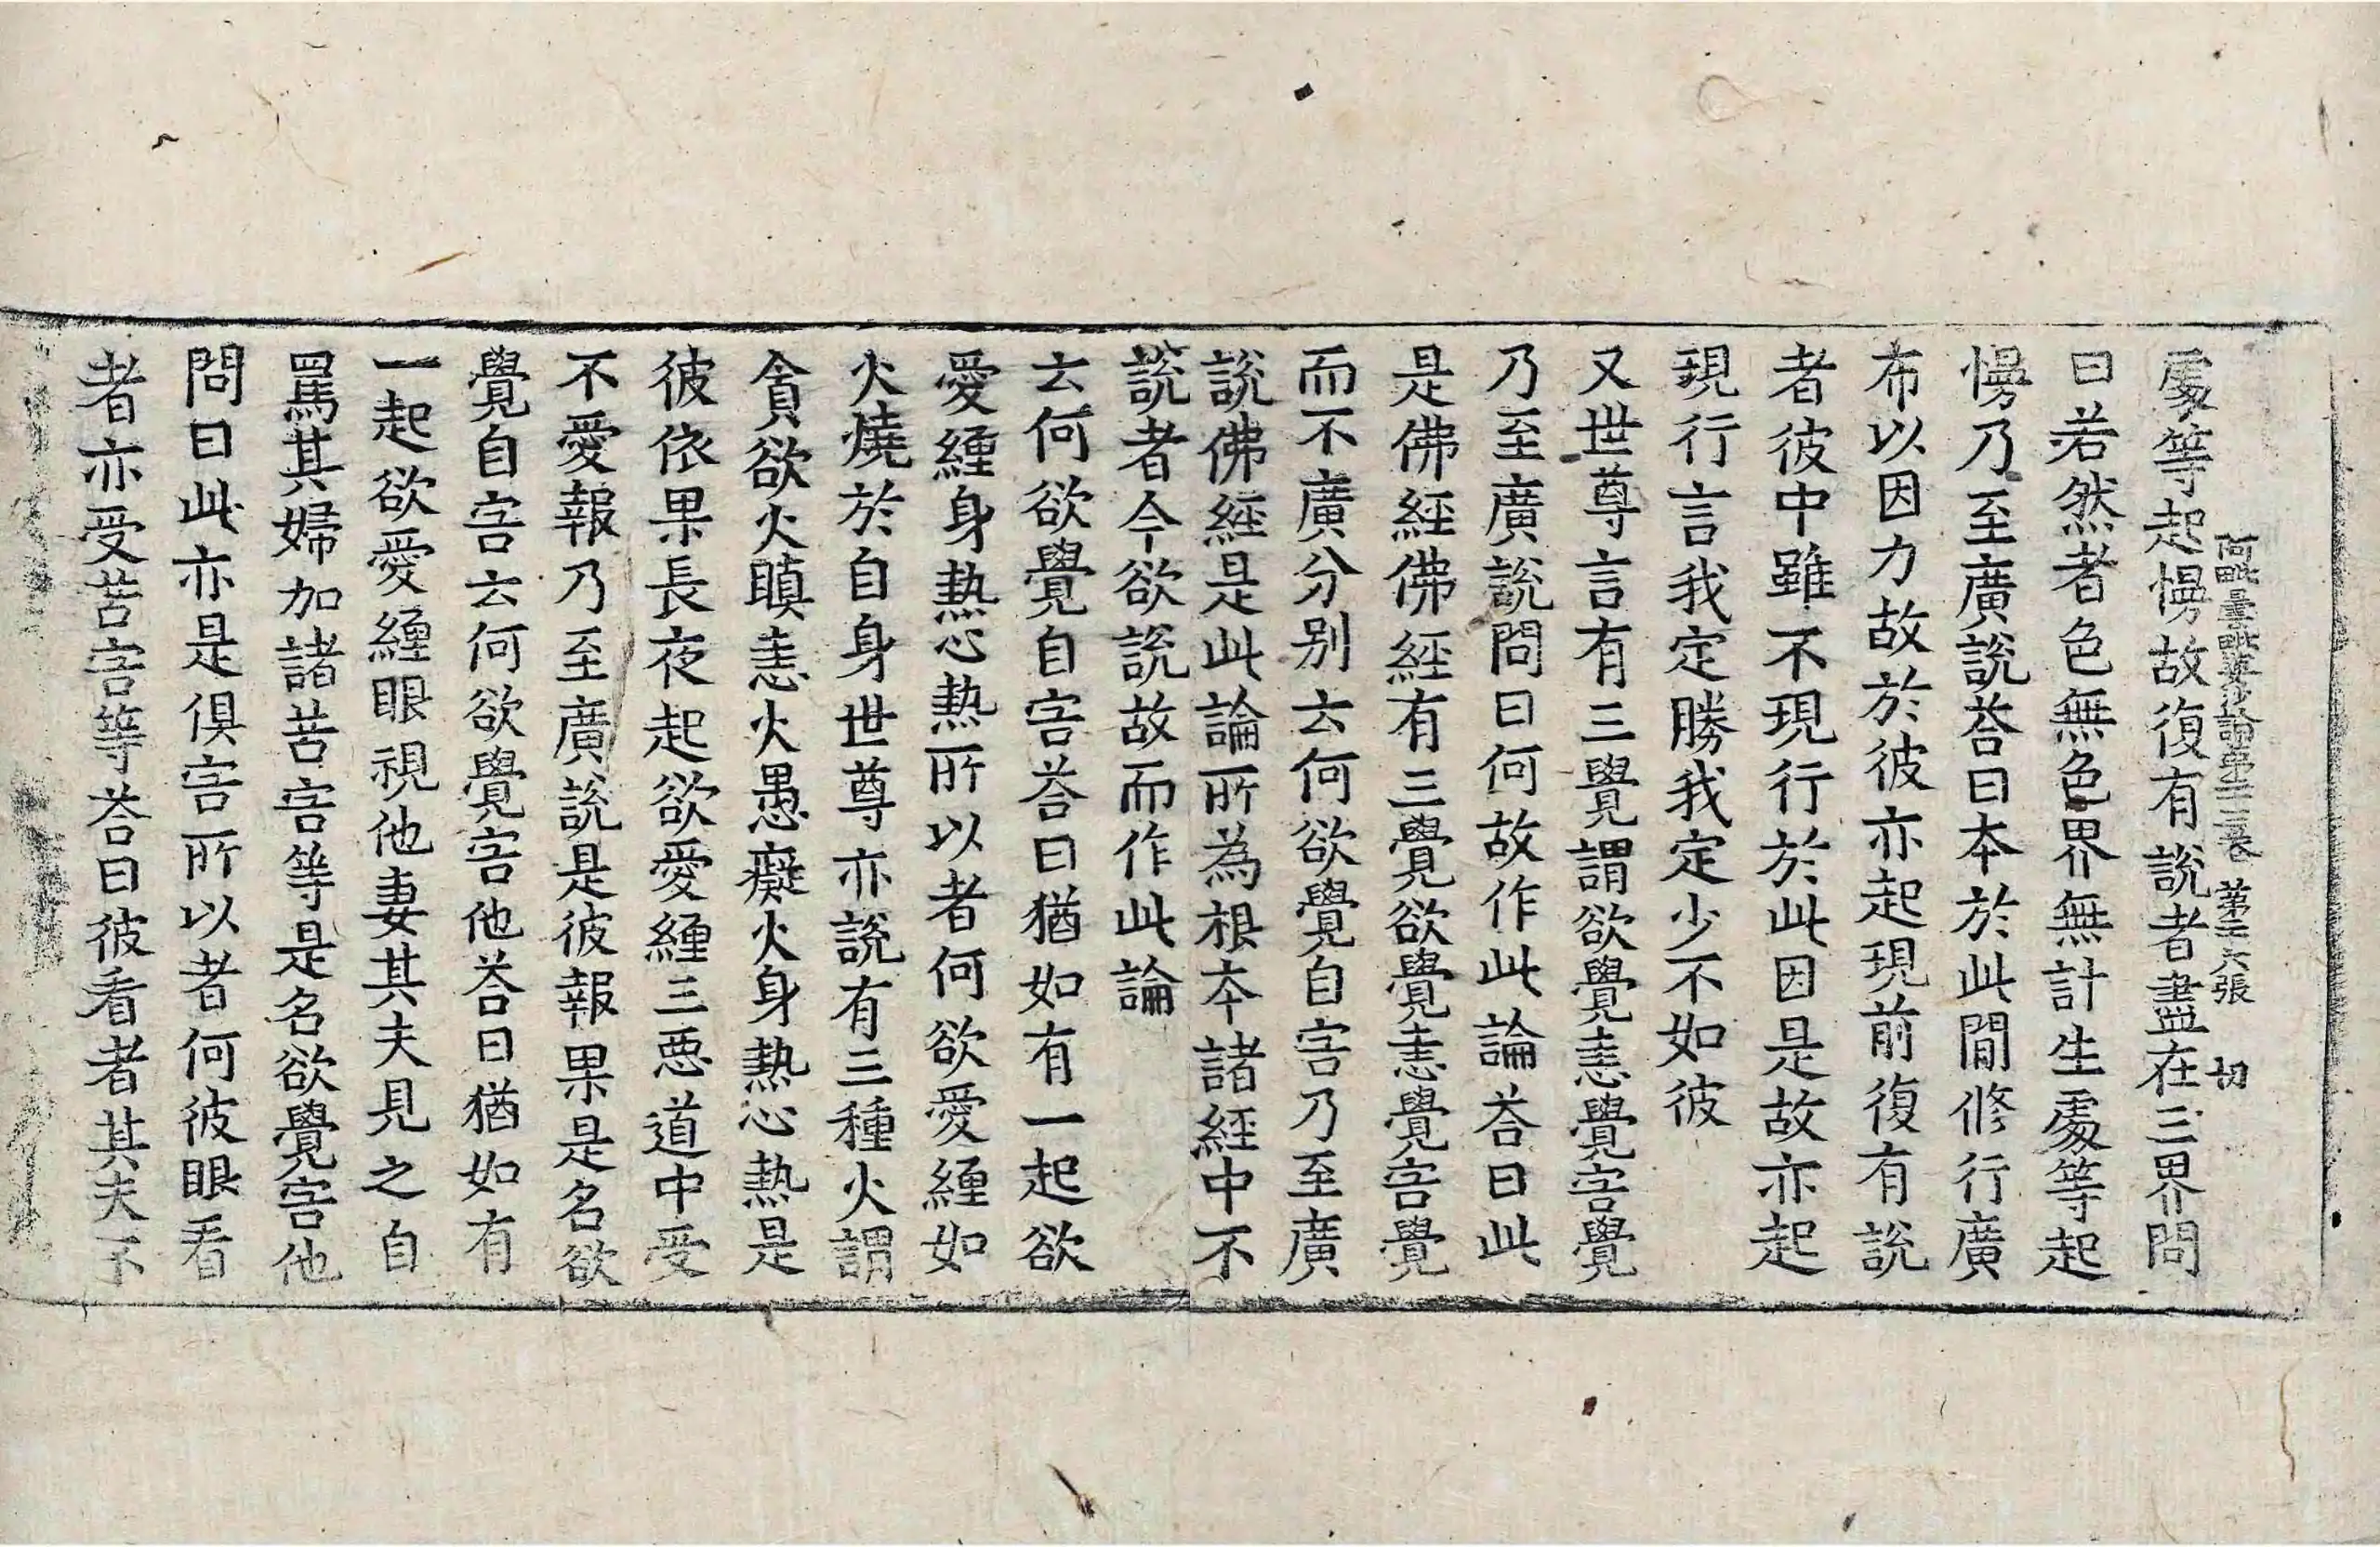 處等起慢故復有說者盡在三界問
阿毗曇毗婆沙論第二三卷 第三六張 切
曰若然者色無色界無計生處等起
慢乃至廣說荅曰本於此閒修行廣
布以因力故於彼亦起現前復有說
者彼中雖不現行於此因是故亦起
現行言我定勝我定少不如彼
又世尊言有三覺謂欲覺恚覺害覺
乃至廣說問曰何故作此論荅曰此
是佛經佛經有三覺欲覺恚覺害覺
而不廣分別云何欲覺自害乃至廣
說佛經是此論所為根本諸經中不
說者今欲說故而作此論
云何欲覺自害荅曰猶如有一起欲
愛纏身熱心熱所以者何欲愛纏如
火燒於自身世尊亦說有三種火謂
貪欲火瞋恚火愚癡火身熱心熱是
彼依果長夜起欲愛纏三惡道中受
不愛報乃至廣說是彼報果是名欲
覺自害云何欲覺害他荅曰猶如有
一起欲愛纏眼視他妻其夫見之自
罵其婦加諸苦害等是名欲覺害他
問曰此亦是俱害所以者何彼眼看
者亦受苦害等荅曰彼看者其夫不